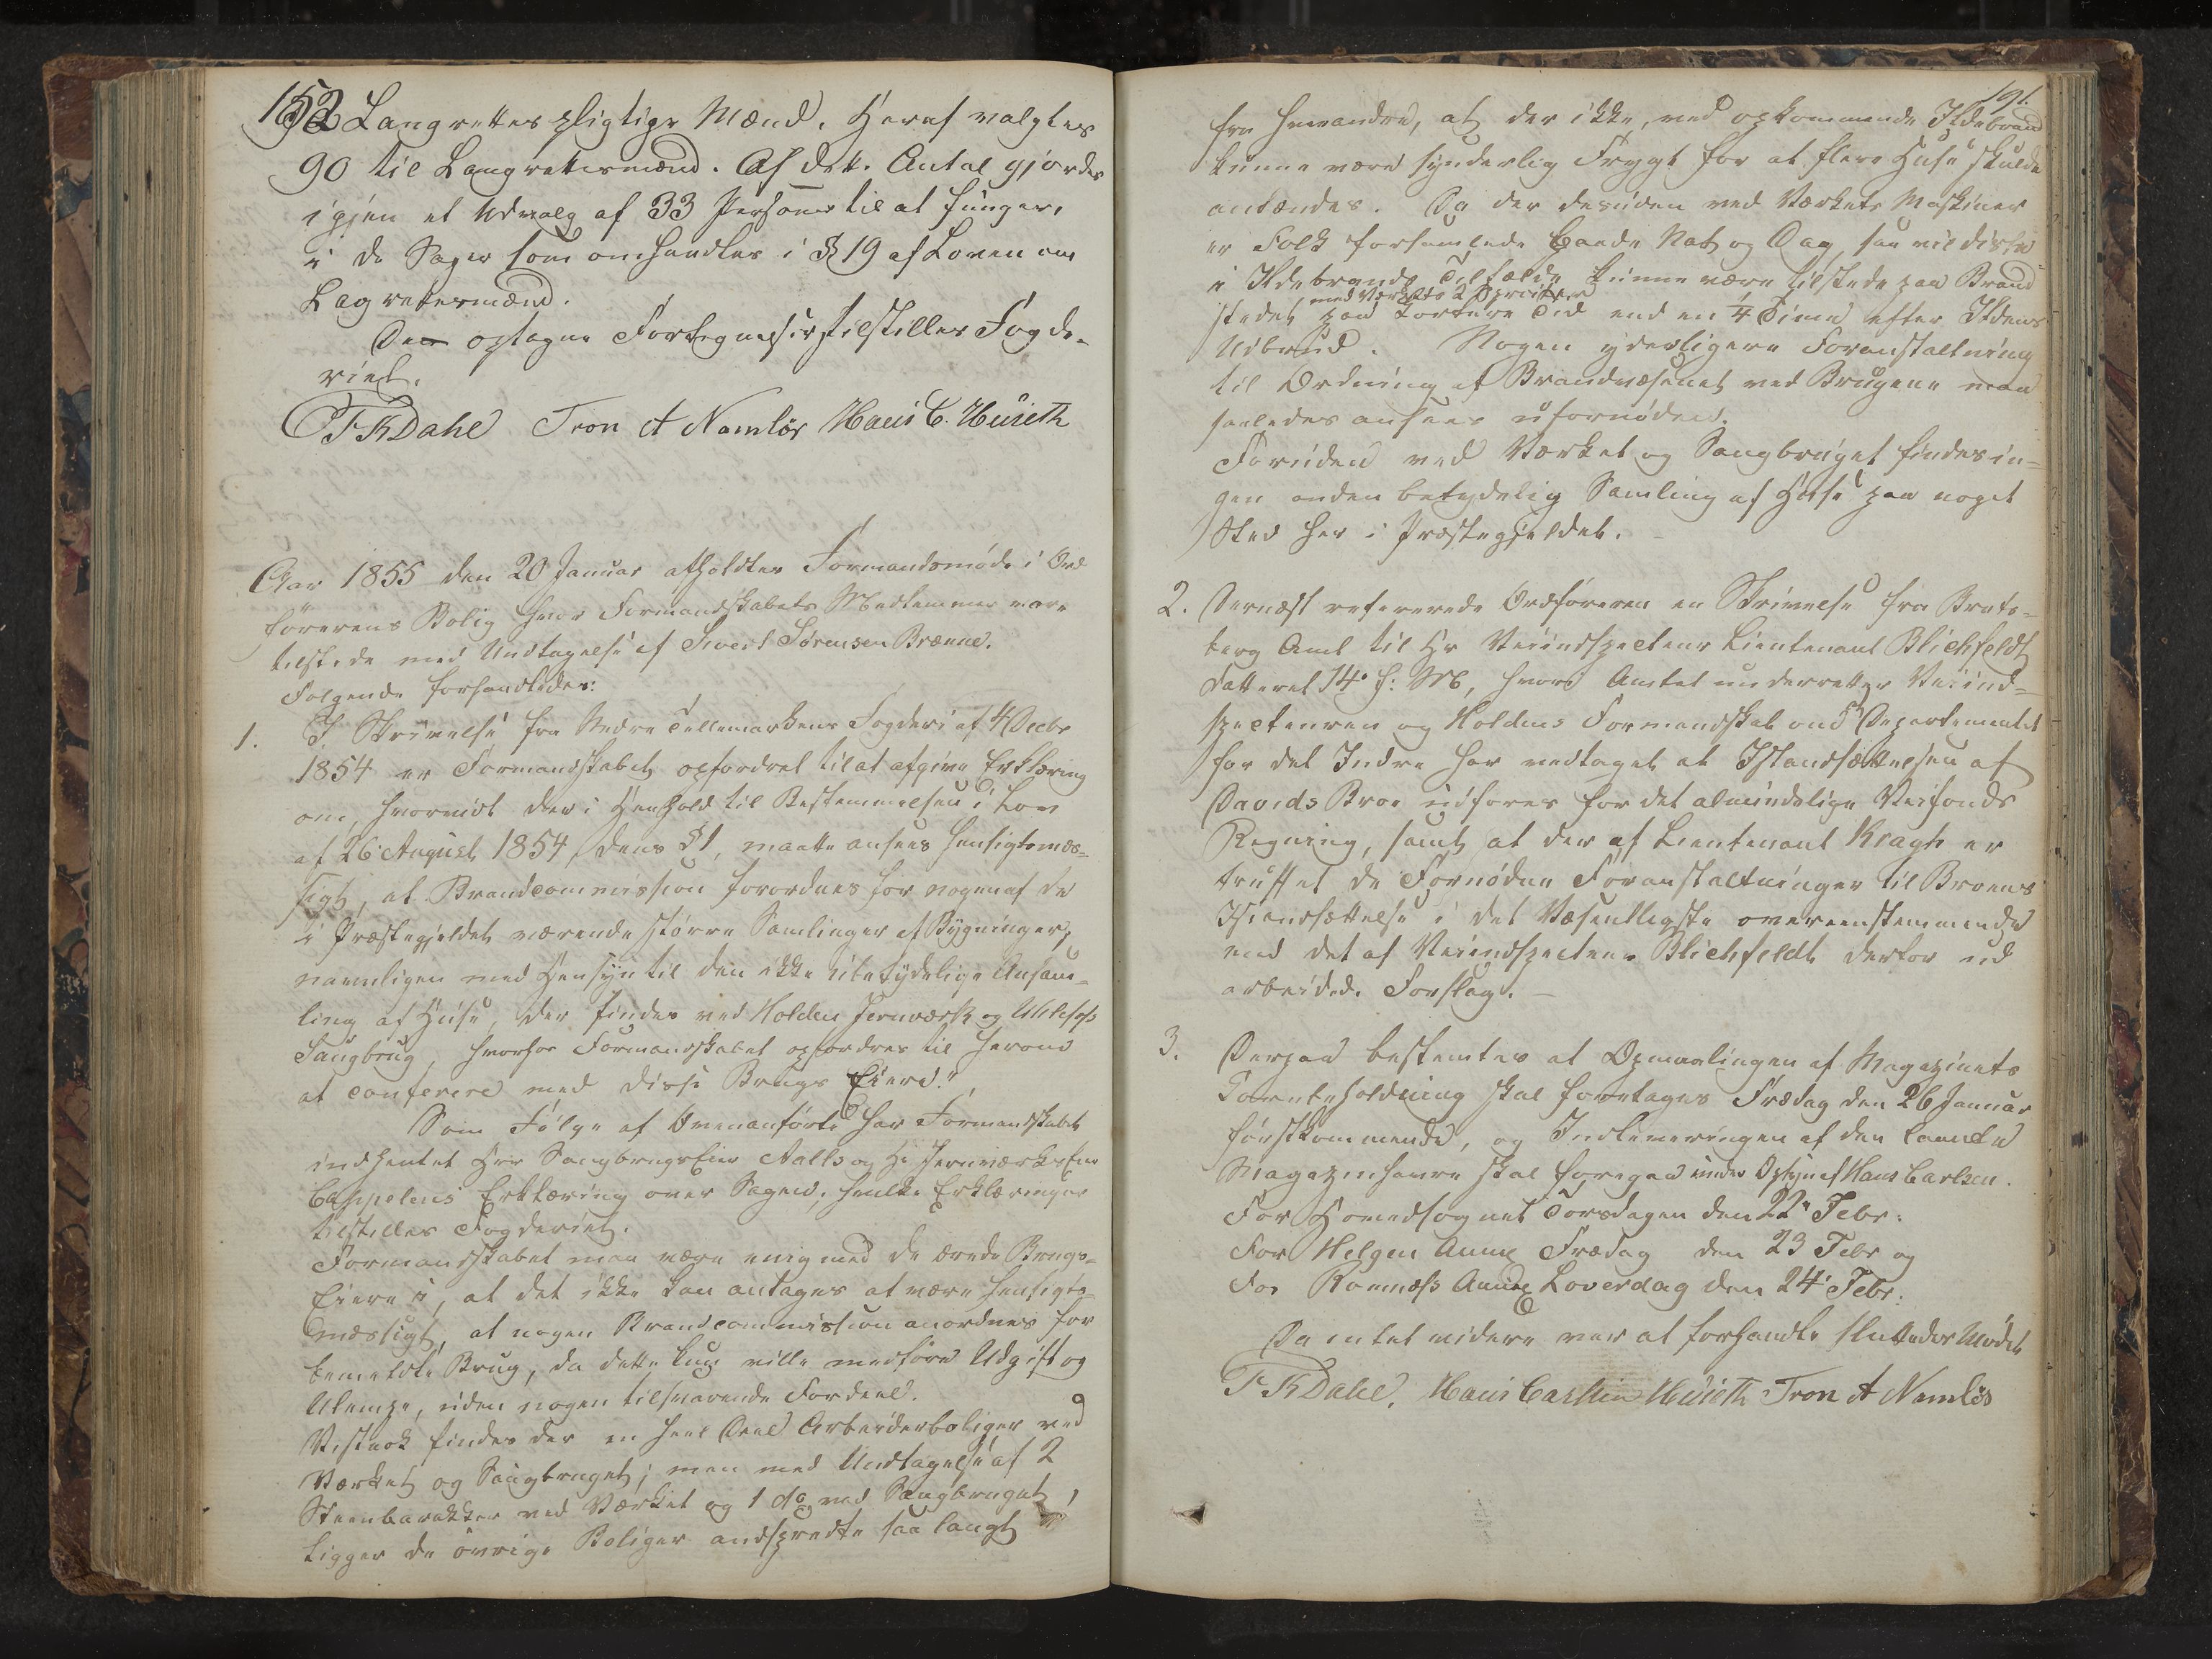 152 Laugrettespligtige Mænd. Heraf valgtes
90 til Laugrettesmænd. Af dette Antal gjordes
igjen et Udvalg af 33 Personer til at fungere
i de Sager som omhandles i § 19 af Loven om
Lagrettesmænd.
Den optagne Fortegnelse tilstilles Fogde-
riet.
TKDahl Tron A Namløs Hans C. Huseth
Aar 1855 den 20 Januar afholdtes Formandsmøde i Ord
førerens Bolig hvor Formandskabets Medlemmer vare
tilstede med Undtagelse af Siverl Sørensen Brænne.
Følgende forhandledes:
1. I Skrivelse fra Nedre Tellemarkens Fogderi af 4 Decbr
1854 er Formandskabet opfordret til at afgive Erklæring
om, hvorvidt der i Henhold til Bestemmelsen i Lov
af 26 August 1854, dens § 1, maatte ansees hensigtsmæs-
sigt, at Brandcommission forordnes for nogen af de
i Præstegjeldet værende større Samlinger af Bygninger,
navnligen med Hensyn til den ikke ubetydelige Ansam-
ling af Huse, der findes ved Holden Jernværk og Ulefoss
Saugbrug, hvorfor Formandskabet opfordres til herom
at conferere med disse Brugs Eiere."
Som Følge af Ovenanførte har Formandskabet
indhentet Hrr Saugbrugseier Aalls og Hr Jernværkseier
Cappelens Erklæring over Sagen, hvilke Erklæringer
tilstilles Fogderiet.
Formandskabet maa være enig med de ærede Brugs-
Eiere i, at det ikke kan antages at være hensigts-
mæssigt, at nogen Brandcommission anordnes for
bemeldte Brug, da dette kun ville medføre Udgift og
Ulempe, uden nogen tilsvarende Fordeel.
Vistnok findes der en heel Deel Arbeiderboliger ved
Værket og Saugbruget; men med Undtagelse af 2
Steenbarakker ved Værket og 1 do ved Saugbruget,
ligger de øvrige Boliger adspredte saa langt
191.
fra hverandre, at der ikke, ved opkommende Ildebrand
kunne være synderlig Frygt for at flere Huse skulde
antændes. Da der desuden ved Værkets Maskiner
er Folk forsamlede baade Nat og Dag, saa vil disse
i Ildebrands Tilfælde kunne være tilstede paa Brand-
med Værkets 2 Sprøiter
stedet paa kortere Tid end en ¼ Time efter Ildens
Udbrud. Nogen yderligere Foranstaltning
til Ordning af Brandvæsenet ved Brugene maa
saaledes ansees ufornøden.
Foruden ved Værket og Saugbruget findes in-
gen anden betydelig Samling af Huse paa noget
Sted her i Præstegjeldet.
2. Dernæst refererede Ordføreren en Skrivelse fra Brats-
berg Amt til Hr Veiindspecteur Lieutenant Blichfeldt
datteret 14de f: M, hvori Amtet underretter Veiind-
specteuren og Holdens Formandskab om at Departementet
for det Indre har vedtaget at Istandsættelsen af
Davids Broe udføres for det almindelige Veifonds
Regning, samt at der af Lieutenant Kragh er
truffet de Fornødne Foranstaltninger til Broens
Istandsættelse i det Væsentligste overeenstemmende
med det af Veiindspecteur Blichfeldt derfor ud
arbeidede Forslag.
3. Derpaa bestemtes at Opmaalingen af Magazinets
Kornbeholdning skal foretages Frædag den 26 Januar
førstkommende, og Indleveringen af den laante
Magazinhavre skal foregaa under Opsyn af Hans Carlsen.
For Hovedsognet Torsdagen den 22de Febr:
For Helgen Annex Frædag den 23 Febr og
For Romnæss Annex Loverdag den 24 Febr:
Da intet videre var at forhandle sluttedes Mødet
TKDahl. Hans Carlsen Huseth Tron A Namløs